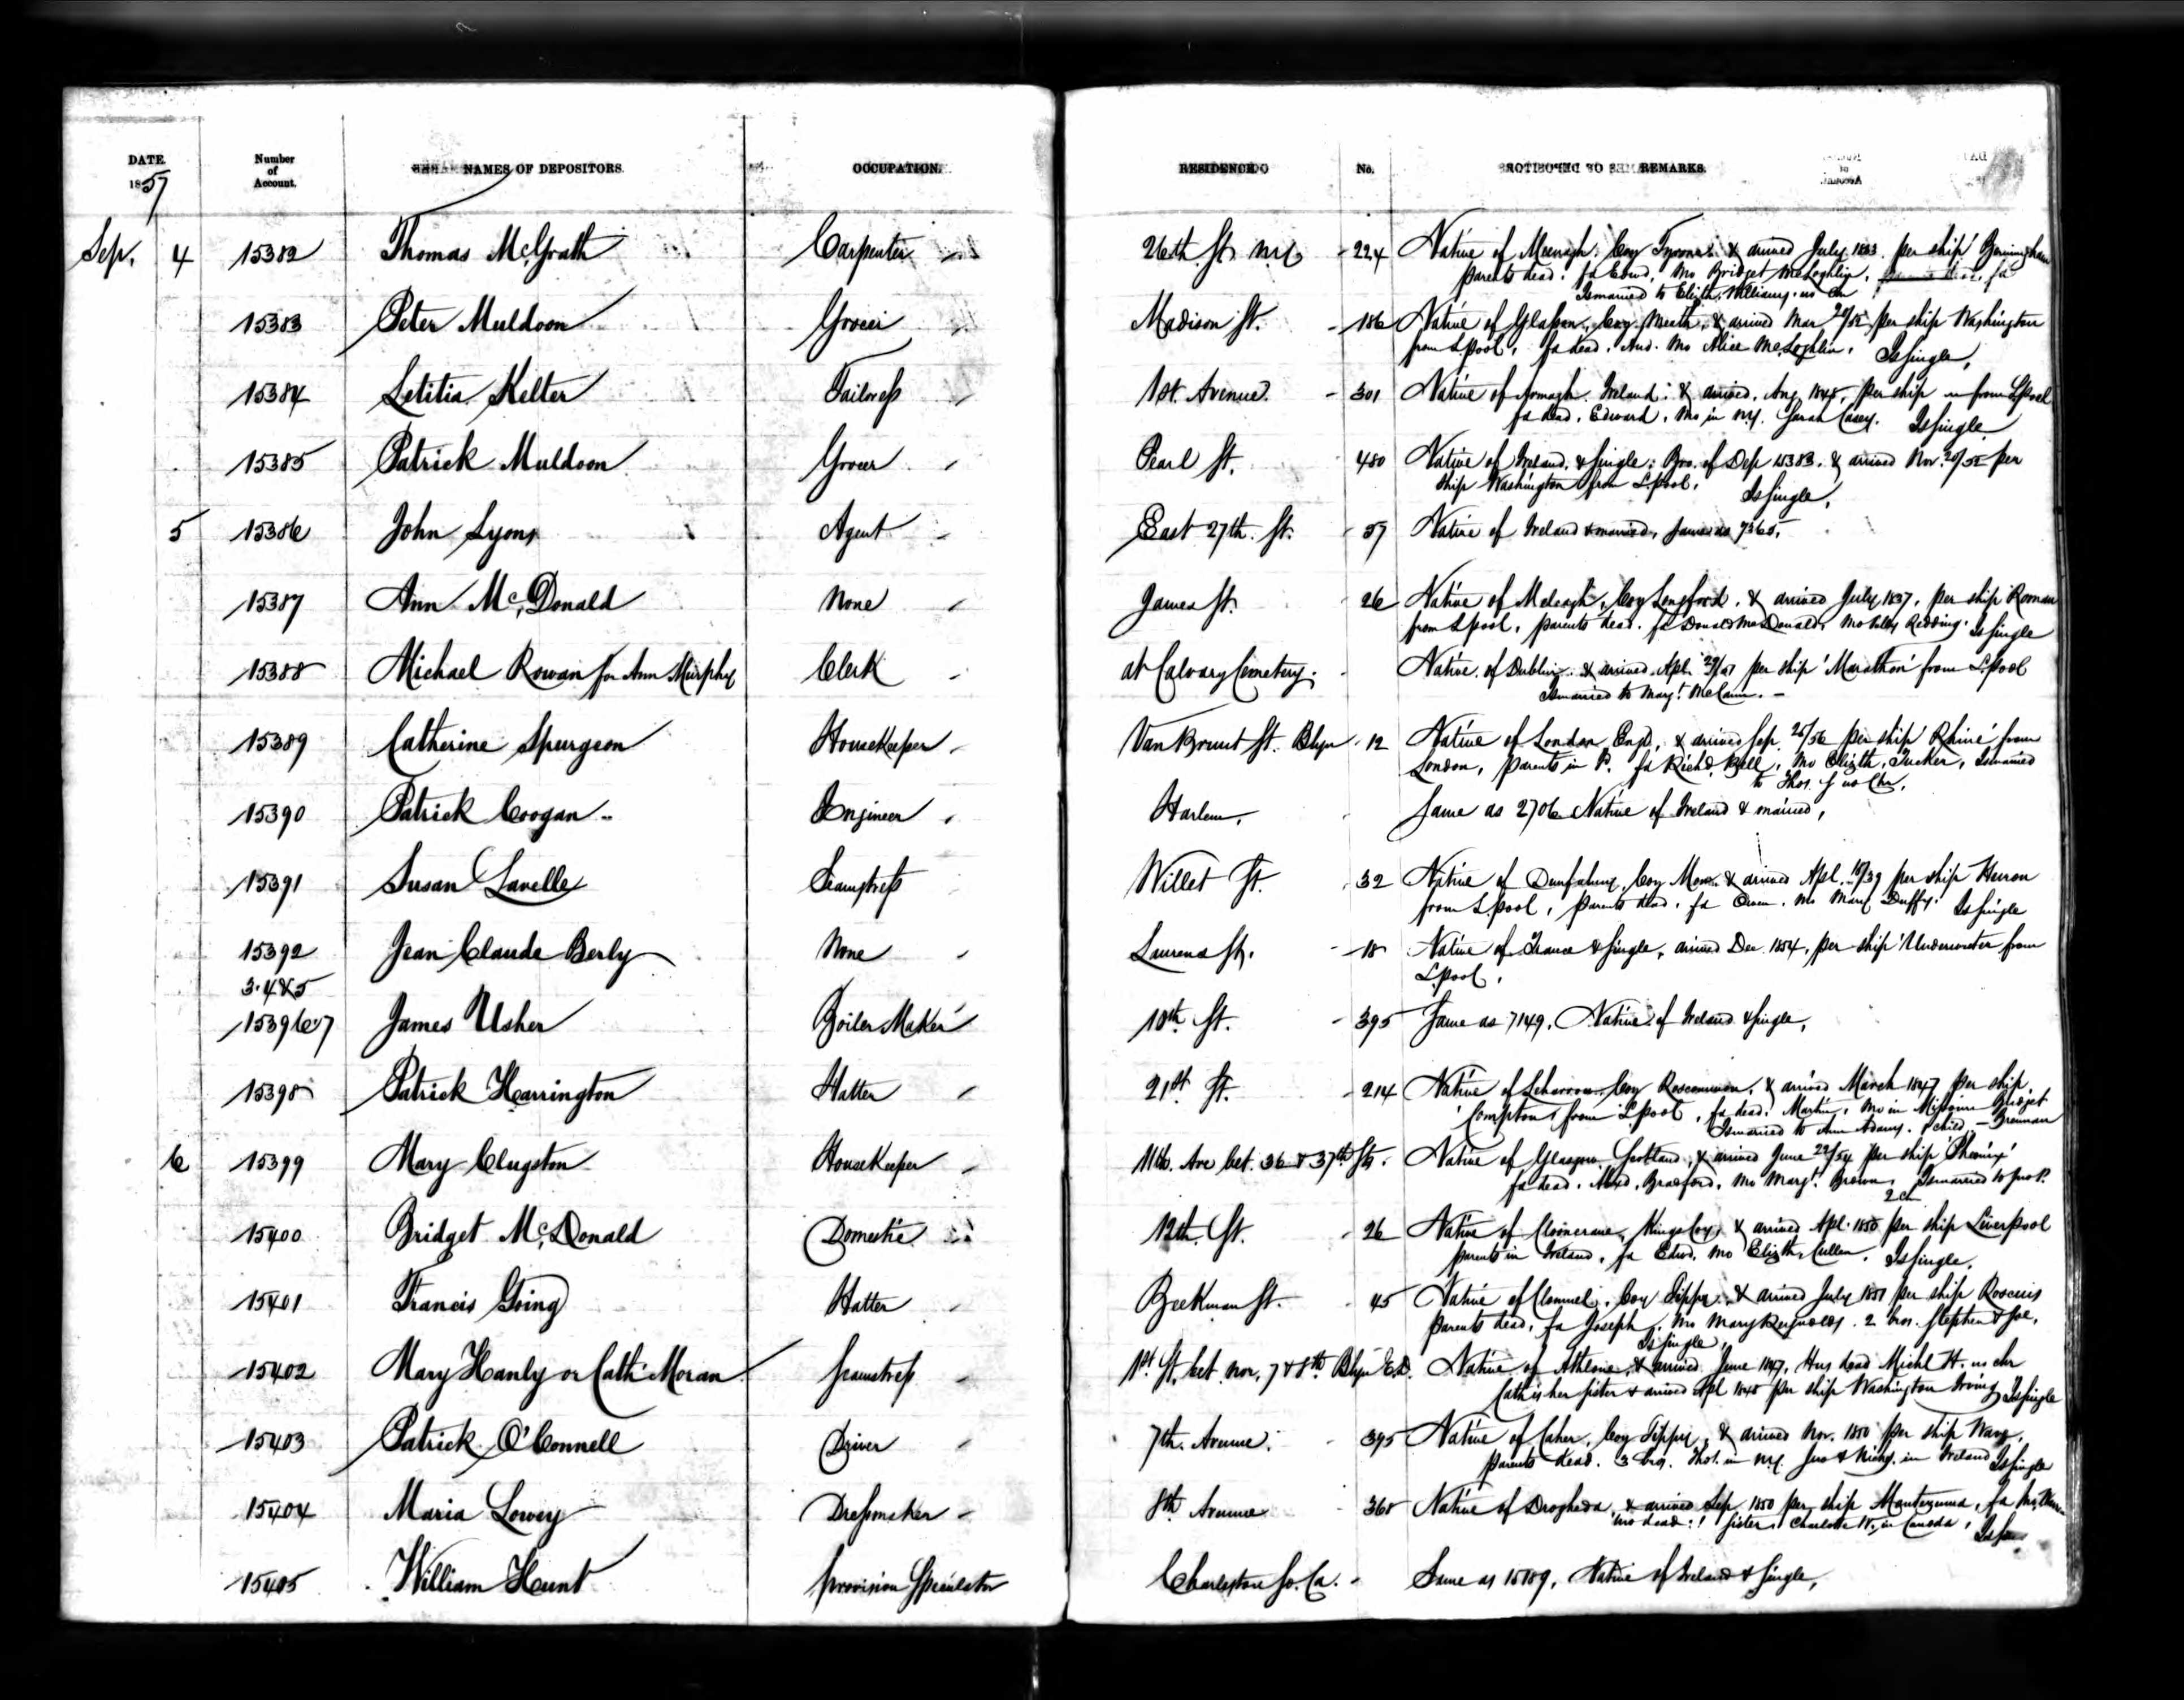 DATE. Number of Account. NAMES OF DEPOSITORS. OCCUPATION. RESIDENCE No. REMARKS.
1857
Sep. 4 15382 Thomas McGrath Carpenter 26th St. N.Y. 224 Native of Coy Tyrone & arrived July 1833 per ship
parents dead. fa Edwd, Mo Bridget McLoghlin,
Is married to Elizth. Williams. no chn
15383 Peter Muldoon Grocer Madison St. 186 Native of Coy Meath, & arrived Mar per ship Washington
from L.pool, fa dead. And. Mo Alice McLoghlin. Is single,
15384 Letitia Kelter Tailoress 1st Avenue 301 Native of Armagh. Ireland: & arrived, Aug. 1848, per ship from L.pool
fa dead. Edward, Mo in N.Y. Sarah Casey. Is single
15385 Patrick Muldoon Grocer Pearl St. 480 Native of Ireland, & single: Bro. of Dep 15383. & arrived Nov. per
ship Washington from L.pool. Is single,
5 15386 John Lyons Agent East 27th. St. 57 Native of Ireland & married, same as 7365,
15387 Ann McDonald None James St. 26 Native of Coy Longford. & arrived July 1837, per ship Roman
from L.pool, parents dead. fa Donald McDonald, Mo Redding. Is single
15388 Michael Rowan for Ann Murphy Clerk at Calvary Cemetery. Native of Dublin & arrived Apl. per ship 'Marathon' from L.pool
Is married to Margt. McCann. –
15389 Catherine Spurgeon HouseKeeper Van Brunt St. Blyn 12 Native of London, Engd, & arrived Sep. 26/56 per ship 'Rhine' from
London, parents in P. fa Richd. Bell, Mo Elizth. Tucker, Is married
to Thos. J no Chn.
15390 Patrick Coogan Engineer Harlem, Same as 2706 Native of Ireland & married,
15391 Susan Lavelle Seamstress Willet St. 32 Native of Coy & arrived Apl. 18/39 per ship Huron
from L.pool, parents dead, fa Owen. Mo Mary Duffy. Is single
15392 Jean Claude Berly None Laurens St. 18 Native of France & single, arrived Dec. 1854, per ship 'Underwriter from
3.4&5 L.pool,
15396&7 James Usher Boiler Maker 10th St. 395 Same as 7149. Native of Ireland & single,
15398 Patrick Harrington Hatter 21st St. 214 Native of Coy Roscommon, & arrived March 1847 per ship
'Compton' from L.pool, fa dead. Martin, Mo in Missouri Bridget
Is married to Ann Adams. 1 child. – Brennan
6 15399 Mary Clugston HouseKeeper 11th. Ave bet. 36 & 37th Sts. Native of Glasgow Scotland, & arrived June 22/54 per ship 'Phoenix'
fa dead. Alexd. Bradford. Mo Margt. Brown, Is married to
2 ch
15400 Bridget McDonald Domestic 12th. St. 26 Native of Kings Coy, & arrived Apl. 1850 per ship Liverpool
parents in Ireland, fa Edwd. Mo Elizth. Cullen. Is single,
15401 Francis Going Hatter Beekman St. 45 Native of Clonmel, Coy Tippy, & arrived July 1851 per ship Roscius
parents dead, fa Joseph. Mo Mary Reynolds. 2 bros. Stephen & Joe,
Is single,
15402 Mary Hanly or Cath. Moran Seamstress 1st St. bet. nor. 7 & 8th Blyn E.D. Native of Athlone, & arrived June 1847, Hus dead Michl H. no chn
Cath is her sister & arrived Apl 1848 per ship Washington Irving Is single
15403 Patrick O'Connell Driver 7th. Avenue. 395 Native of Caher, Coy Tippy, & arrived Nov. 1850 per ship
parents dead. 3 bros. Thos. in N.Y. in Ireland Is single
15404 Maria Lowey Dressmaker 8th Avenue 368 Native of Drogheda, & arrived Sep. 1850 per ship Montezuma, fa
mo dead: sister Charlotte in Canada,
15405 William Hunt provision Speculator Charleston So. Ca. Same as 15189, Native of Ireland & single,